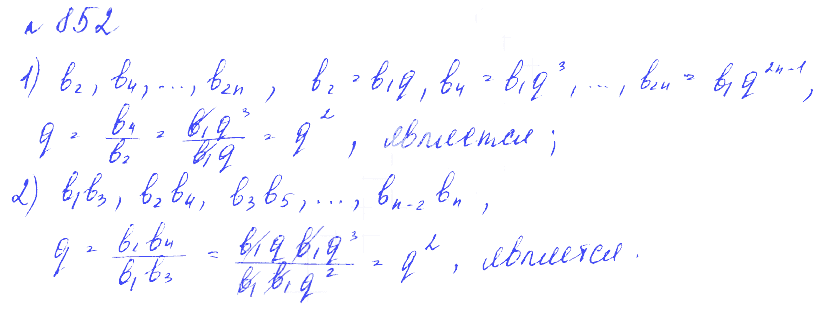 № 852
1) b₂, b₄, ..., b₂ₙ, b₂ = b₁q, b₄ = b₁q³, ..., b₂ₙ = b₁q²ⁿ⁻¹,
q = b₄/b₂ = b₁q³/b₁q = q², является;
2) b₁b₃, b₂b₄, b₃b₅, ..., bₙ₋₂ bₙ,
q = b₂b₄/b₁b₃ = b₁q b₁q³/b₁b₁q² = q², является.